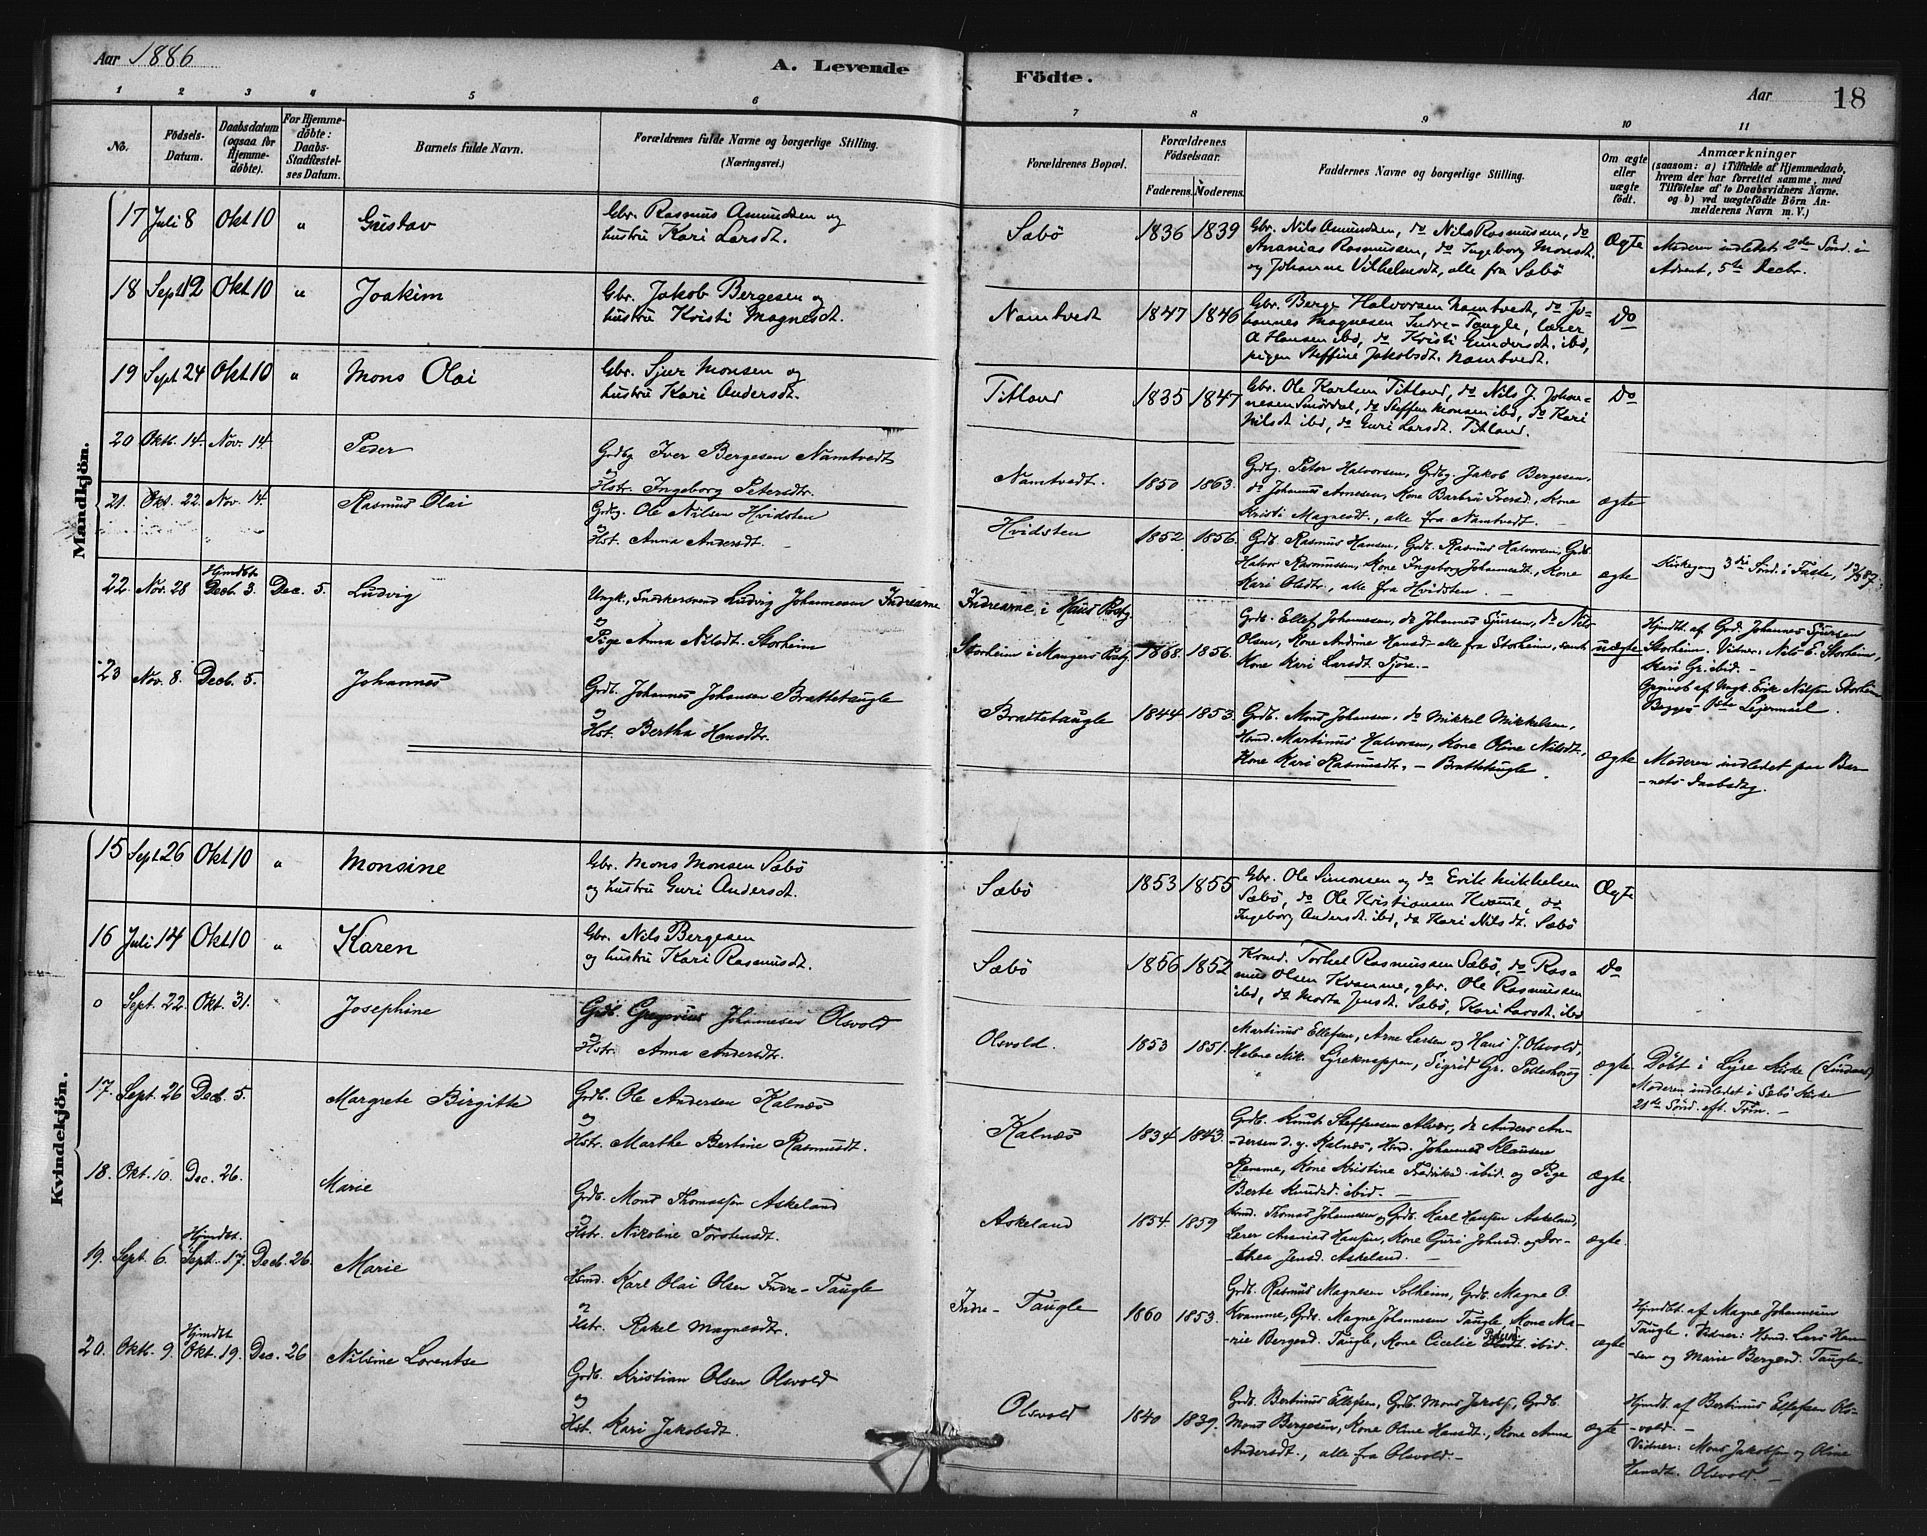 Aar 1886
A. Levende
Födte.
Aar
18
1 2 3 4 5 6 7 8 9 10 11
No.
Födsels-Datum.
Daabsdatum (ogsaa for Hjemme-döbte).
For Hjemme-döbte: Daabs-Stadfæstel-ses Datum.
Barnets fulde Navn.
Forældrenes fulde Navne og borgerlige Stilling.
(Næringsvei.)
Forældrenes Bopæl.
Forældrenes Födselsaar.
Faderens. Moderens.
Faddernes Navne og borgerlige Stilling.
Om ægte eller uægte födt.
Anmærkninger
(saasom: a) i Tilfælde af Hjemmedaab,
hvem der har forrettet samme, med
Tilföielse af to Daabsvidners Navne,
og b) ved uægtefödte Börn An-
melderens Navn m. V.)
Mandkjön.
17 Juli 8 Okt 10 " Gustav
Gbr. Rasmus Asmundsen og
hustru Kari Larsdt.
Sæbö 1836 1839
Gbr. Nils Asmundsen, do Nils Rasmussen, do
Ananias Rasmussen, do Ingeborg Monsdt.
og Johanne Vilhelmsdt, alle fra Sæbö
Ægte
Moderen indledet 2den Sönd. i
Advent, 5te Decbr.
18 Sept 12 Okt 10 " Joakim
Gbr. Jakob Bergesen og
hustru Kristi Magnesdt.
Namtvedt 1847 1846
Gbr. Berge Halvorsen Namtvedt, do Jo-
hannes Magnesen Indre-Taugle, lærer
A Hansen ibd, do Kristi Gundersdt. ibd,
pigen Steffine Jakobsdt. Namtvedt.
Do
19 Sept 24 Okt 10 " Mons Olai
Gbr. Sjur Monsen og
hustru Kari Andersdt.
Titland 1835 1847
Gbr. Ole Karlsen Titland, do Nils J. Johan-
nesen Smördal, do Steffen Monsen ibd, do Kari
Nilsdt ibd, do Guri Larsdt. Titland.
Do
20 Okt. 14. Nov. 14. Peder
Grdbg Iver Bergesen Namtvedt
og
Hstr. Ingeborg Petersdtr.
Namtvedt. 1850 1863.
Grdbg. Peter Halvorsen, Grdbg. Jakob Bergesen,
do Johannes Arnesen, Kone Barbru Iversd., Kone
Kristi Magnesdt., alle fra Namtvedt.
ægte
21. Okt. 22. Nov. 14. Rasmus Olai
Grdbg. Ole Nilsen Hvidsten
og
Hst. Anna Andersdt.
Hvidsten 1852. 1856.
Grdb. Rasmus Hansen, Grdb. Rasmus Halvorsen, Grdb.
Halvor Rasmussen, Kone Ingeborg Johannesdt., Kone
Kari Olsdtr., alle fra Hvidsten.
ægte
Kirkegang 3die Sönd. i Faste, 13/3 87.
22. Nov. 28 Hjmdöbt Decb. 3. Dec. 5. Ludvig
Ungk., Snedkersvend Ludvig Johannesen Indrearne
og
Pige Anna Nilsdt. Storheim
Indrearne i Haus Pstg.
Storheim i Mangers Pstg. 1868. 1856.
Grdb. Ellef Johannesen, do Johannes Sjursen, do Nils
Olsen, Kone Andrine Hansd. alle fra Storheim, samt
Kone Kari Larsdt. Tjore.
uægte
Hjmdbt. af Grd. Johannes Sjursen
Storheim. Vidner: Nils E. Storheim,
Kari Gr. ibid.
Opgivet af Ungk. Erik Nilsen Storheim
Begges 1ste Leiermaal.
23 Nov. 8. Decb. 5. Johannes
Grdb. Johannes Johansen Brattetaugle
og
Hst. Bertha Hansdtr.
Brattetaugle 1844 1853.
Grdb. Mons Johansen, do Mikkel Mikkelsen,
Hsmd. Martinus Halvorsen, Kone Oline Nilsdt.,
Kone Kari Rasmusdtr. – Brattetaugle.
ægte
Moderen indledet paa Bar-
nets Daabsdag.
Kvindekjön.
15 Sept 26 Okt 10 " Monsine
Gbr. Mons Monsen Sæbö
og hustru Guri Andersdt.
Sæbö 1853 1855
Gbr. Ole Simonsen og do Erik Mikkelsen
Sæbö, do Ole Kristiansen Kvame, do
Ingeborg Andersdt. ibd, do Kari Nilsdt. Sæbö
Ægte
16 Juli 14 Okt 10 " Karen
Gbr. Nils Bergesen
og hustru Kari Rasmusdt.
Sæbö 1856 1852
Kornd. Torkel Rasmussen Sæbö, do Ras-
mus Olsen Kvamme, gbr. Ole Rasmussen
ibd, do Marta Jensdt. Sæbö, Kari Larsdt. ibd
Do
0 Sept. 22. Okt. 31. Josephine
Grdb. Gregorius Johannesen Olsvold
og
Hstr. Anna Andersdtr.
Olsvold. 1853 1851.
Martinus Ellefsen, Arne Larsen og Hans J. Olsvold,
Helene Nik. Lyreknappen, Sigrid Gr.
ægte
Döbt i Lyse Kirke (Lindaas)
Moderen indledet i Sæbö Kirke
21de Sönd. eft. Trin.
17. Sept. 26 Decb. 5. Margrete Birgitte
Grdb. Ole Andersen Kalnæs
og
Hstr. Marthe Bertine Rasmusdt.
Kalnæs 1834 1843.
Grdb. Knut Steffensen Alvær, do Anders An-
dersen d. y. Kalnæs, Hsmd. Johannes Klausen
Remme, Kone Kristine Fredriksd. ibid. og Pige
Berte Knudsd. ibid.
ægte
18. Okt. 10. Dec. 26. Marie
Grdb. Mons Thomassen Askeland
og
Hstr. Nikoline Torstensdt.
Askeland 1854. 1859
Hsmd. Thomas Johannesen, Grdb. Karl Hansen Askeland,
Lærer Ananias Hansen, Kone Guri Johnsd. og Dor-
thea Jensd. Askeland.
ægte.
19. Sept. 6. Hjmdbt. Sept. 17. Decb. 26 Marie
Hsmd. Karl Olai Olsen Indre-Taugle
og
Hstr. Rakel Magnesdtr.
Indre-Taugle 1860 1853.
Grdb. Rasmus Magnesen Solheim, Grdb. Magne O.
Kvamme, Grdb. Magne Johannesen Taugle, Kone Ma-
rie Bergesd. Taugle, Kone Cecilie Olsdt. ibid.
ægte
Hjmdbt. af Magne Johannesen
Taugle. Vidner: Hsmd. Lars Han-
sen og Marie Bergesd. Taugle.
20. Okt. 9. Hjmdbt. Okt. 19. Dec. 26 Nilsine Lorentse
Grdb. Kristian Olsen Olsvold
og
Hst. Kari Jakobsdt.
Olsvold 1840 1839.
Grdb. Bertinus Ellefsen, Grdb. Mons Jakobs., Grdb.
Mons Bergesen, Kone Oline Hansdt., Kone Anna
Andersdt., alle fra Olsvold.
ægte
Hjmdbt. af Bertinus Ellefsen Ols-
vold.
Vidner: Mons Jakobsen og Oline
Hansdt. Olsvold.